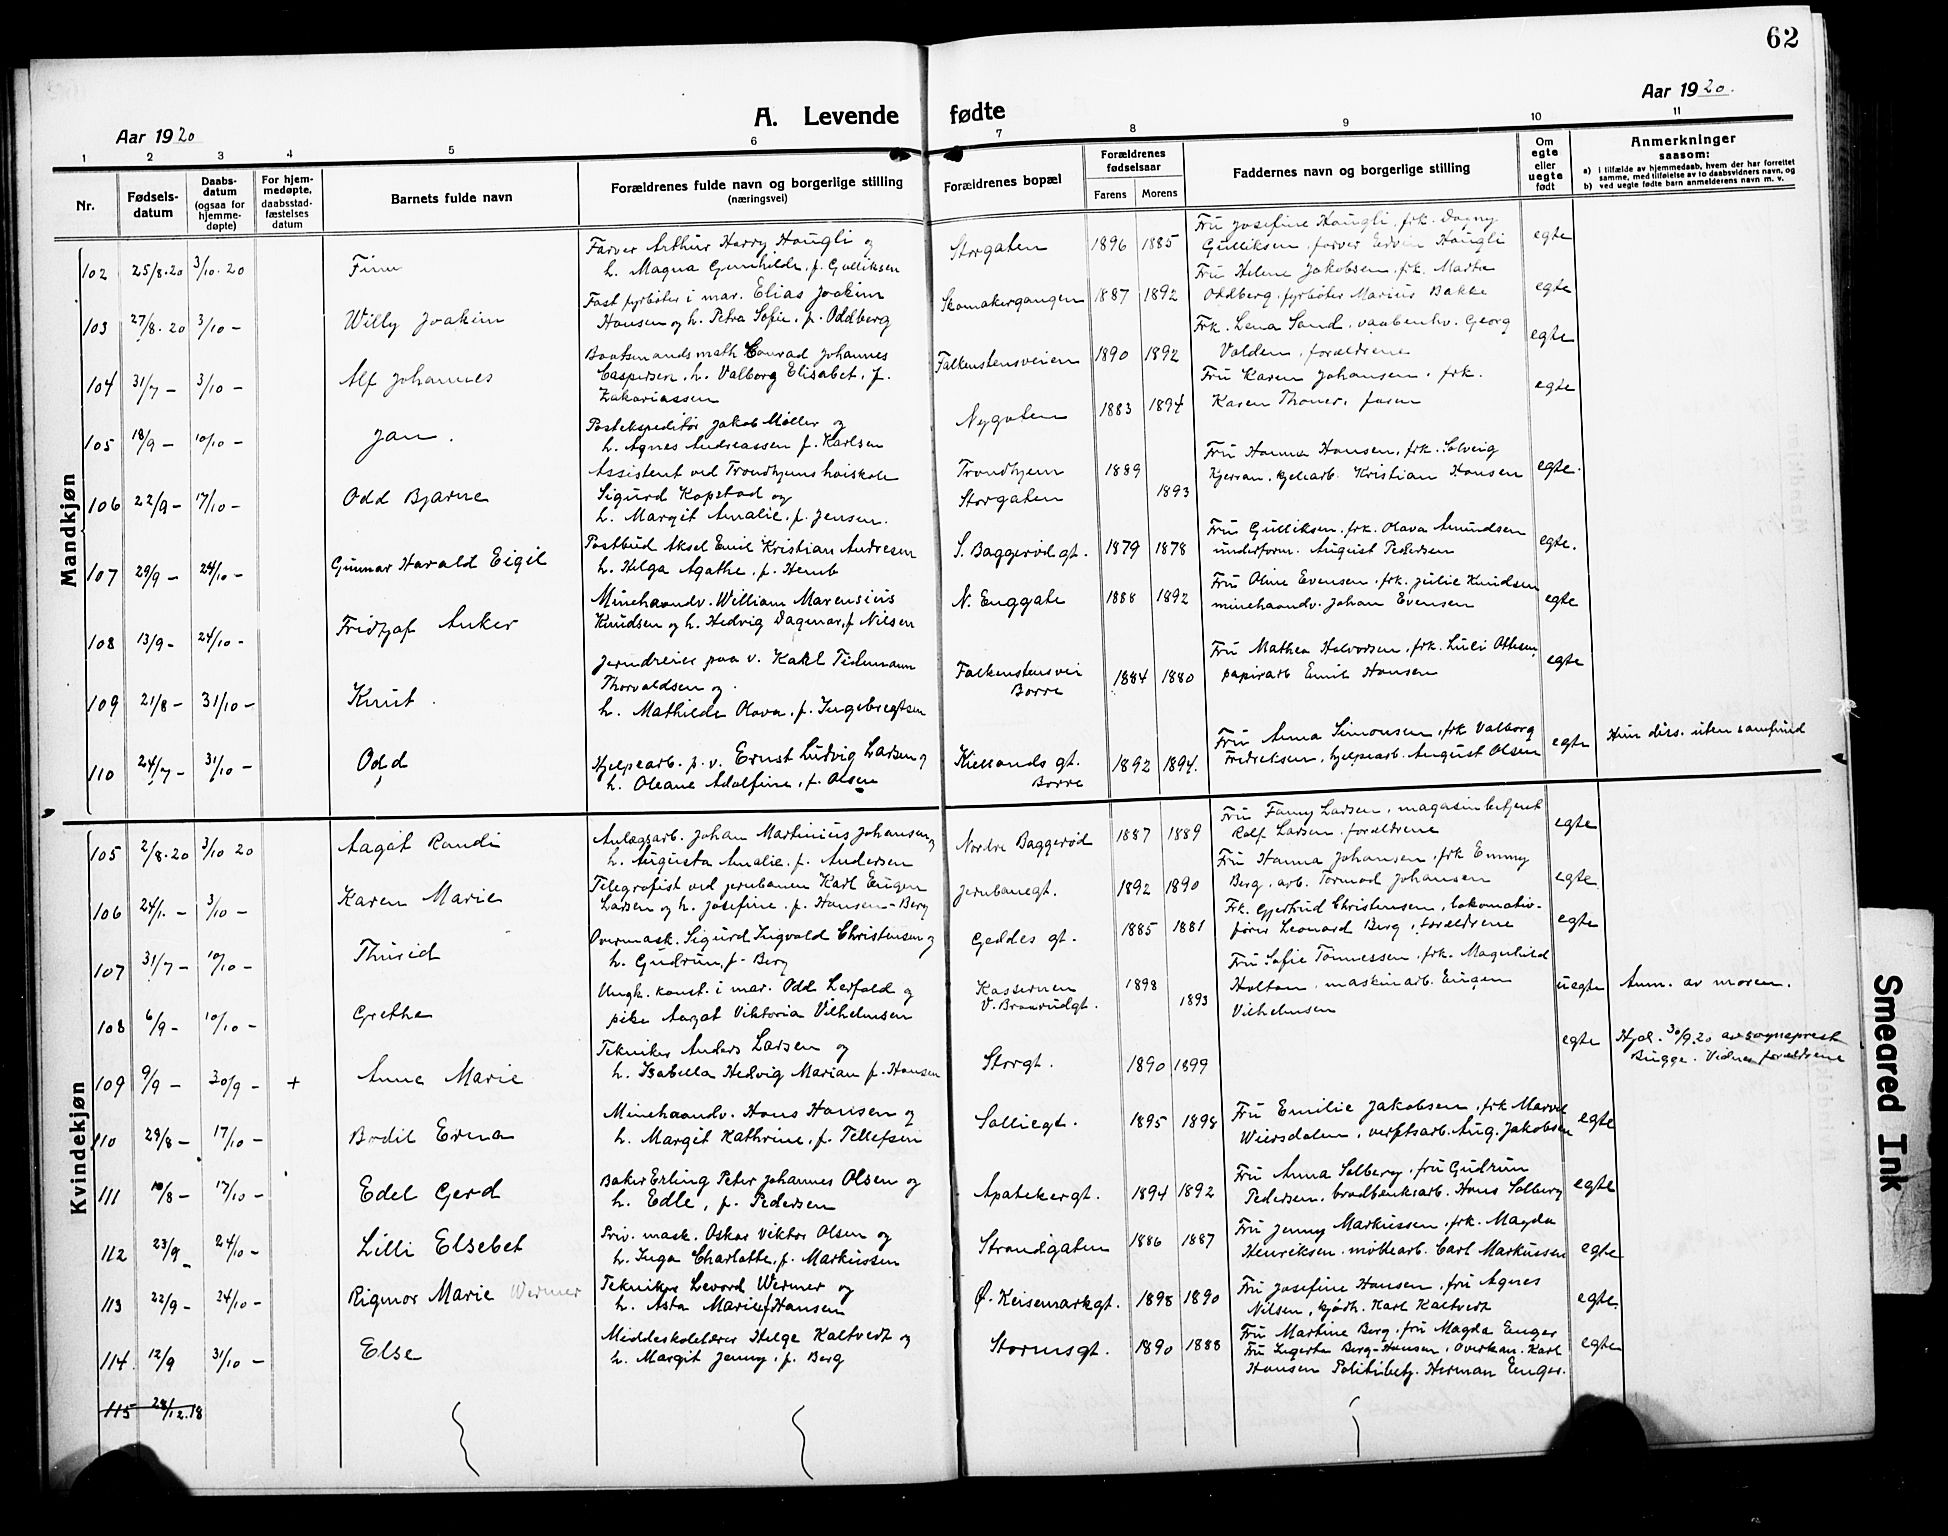 62
Aar 1920
A. Levende fødte
Aar 1920.
1 2 3 4 5 6 7 8 9 10 11
Nr.
Fødsels-datum
Daabs-datum (ogsaa for hjemme-døpte)
For hjem-medøpte, daabsstad-fæstelses datum
Barnets fulde navn
Forældrenes fulde navn og borgerlige stilling
(næringsvei)
Forældrenes bopæl
Forældrenes fødselsaar
Farens Morens
Faddernes navn og borgerlige stilling
Om egte eller uegte født
Anmerkninger
saasom:
a) i tilfælde av hjemmedaab, hvem der har forrettet
samme, med tilføielse av to daabsvidners navn, og
b) ved uegte fødte barn anmelderens navn m. v.
Mandkjøn
102 25/8.20 3/10.20 Finn
Farver Arthur Harry Haugli og
h. Magna Gunhilde, f. Gulliksen
Storgaten 1896 1885
Fru Josefine Haugli, frk. Dagny
Gulliksen, farver Edvin Haugli
egte
103 27/8.20 3/10 – Willy Joakim
Fast fyrbøter i mar. Elias Joakim
Hansen og h. Petra Sofie, f. Oddberg
Skomakergangen 1887 1892
Fru Helene Jakobsen, frk. Marta
Oddberg, fyrbøter Marius Bakke
egte
104 31/7 – 3/10 – Alf Johannes
Baatsmandsmath Conrad Johannes
Caspersen, h. Valborg Elisabet, f.
Zakariassen
Falkenstensveien 1890 1892
Frk. Lena Sand, vaabenhv. Georg
Valden, forældrene
egte
105 18/9 – 10/10 – Jan.
Postekspeditør Jakob Møller og
h. Agnes Andreassen f. Karlsen
Nygaten 1883 1894
Fru Karen Johansen, frk.
Karen Thoner, faren
egte
106 22/9 – 17/10 – Odd Bjarne
Assistent ved Trondhjems høiskole
Sigurd Kopstad og
h. Margit Amalie, f. Jensen.
Trondhjem 1889
Storgaten 1893
Fru Hanna Hansen, frk. Solveig
Kristian Hansen
egte.
107 29/9 – 24/10 – Gunnar Harald Eigil
Postbud Aksel Emil Kristian Andresen
h. Helga Agathe, f. Hemb
S. Baggerød gt. 1879 1878
Fru Gulliksen, frk. Olava Amundsen
underform. August Pedersen
egte.
108 13/9 – 24/10 – Fridtjof Anker
Minehaandv. William Marensius
Knudsen og h. Hedvig Dagmar, f. Nilsen
N. Enggate 1888 1892
Fru Oline Evensen, frk. Julie Knudsen
minehaandv. Johan Evensen
egte
109 21/8 – 31/10 – Knut.
Jerndreier paa v. Karl Tidemann
Thorvaldsen og
h. Mathilde Olava, f. Ingebregtsen
Falkenstensvei
Borre 1884 1880
Fru Mathea Halvorsen, frk. Othem,
papirarb Emil Hansen
egte
110 24/7 – 31/10 – Odd
Hjelpearb. p. v. Ernst Ludvig Larsen og
h. Oleane Adolfine, f. Olsen
Kiellands gt.
Borre 1892 1894.
Fru Anna Simonsen, frk Valborg
Fredriksen, hjelpearb. August Olsen
egte
Hun diss. uten samfund
Kvindekjøn
105 2/8.20 3/10 20 Aagot Randi
Anlægsarb. Johan Martinius Johansen og
h. Augusta Amalie, f. Andersen
Nordre Baggerød 1887 1889
Fru Fanny Larsen, magasinbetjent
Rolf Larsen, forældrene
egte
106 – 3/10 – Karen Marie
Telegrafist ved jernbanen Karl Eugen
Larsen og h. Josefine, f. Hansen-Berg
Jernbanegt. 1892 1890
Fru Hanna Johansen, frk Emmy
Berg, arb. Tormod Johansen
egte
107 31/7 – 10/10 – Thurid
Overmask. Sigurd Ingvald Christensen og
h. Gudrun, f. Berg
Geddes gt. 1885 1881
Frk. Gjertrud Christensen, lokomotiv-
fører Leonard Berg, forældrene
egte
108 6/9 – 10/10 – Grethe
Ungk. konst. i mar. Odd Lerfald og
pike Aagot Viktoria Vilhelmsen
Kassernen 1898
V. Braarudgt. 1893
Fru Sofie Tønnessen, frk. Magnhild
Holtan, maskinarb. Eugen
Vilhelmsen
uegte
Anm. av moren.
109 9/9 – 30/9 – + Anne Marie
Tekniker Anders Larsen og
h. Isabella Hedvig Marian f. Hansen
Storgt. 1890 1899
egte
Hjd. 30/9.20 av sogneprest
Bugge. Vidner forældrene
110 29/8 – 17/10 – Bodil Erna
Minehaandv. Hans Hansen og
h. Margit Kathrine, f. Tellefsen
Solliegt. 1895 1898
Fru Emilie Jakobsen, frk
Weiersdalen, verftsarb. Aug. Jakobsen
egte
111 10/8 – 17/10 – Edel Gerd
Baker Erling Peter Johannes Olsen og
h. Edle, f. Pedersen
Apotekergt. 1894 1892
Fru Anna Solberg, fru Gudrun
Pedersen, Hans Solberg
egte
112 23/9 – 24/10 – Lilli Elsebet
Priv. mask. Oskar Viktor Olsen og
h. Inga Charlotte, f. Markussen
Strandgaten 1886 1887
Fru Jenny Markussen, frk. Magda
Henriksen, møllearb. Carl Markussen
egte
113 22/9 – 24/10 – Rigmor Marie Wermer
Tekniker Levord Wermer og
h. Asta Marie f Hansen
Ø. Keisemarkgt. 1898 1890
Fru Josefine Hansen, fru Agnes
Nilsen, kjødh. Karl Kaltvedt
egte.
114. 12/9 31/10 – Else
Middeskolelærer Helge Kaltvedt og
h. Margit Jenny, f. Berg
Stormsgt. 1890 1888
Fru Martine Berg, fru Magda Enger
Fru Berg-Hansen, Overkan. Karl
Hansen Politibetj. Herman Enger.
egte
115 28/12.18
Smeared Ink